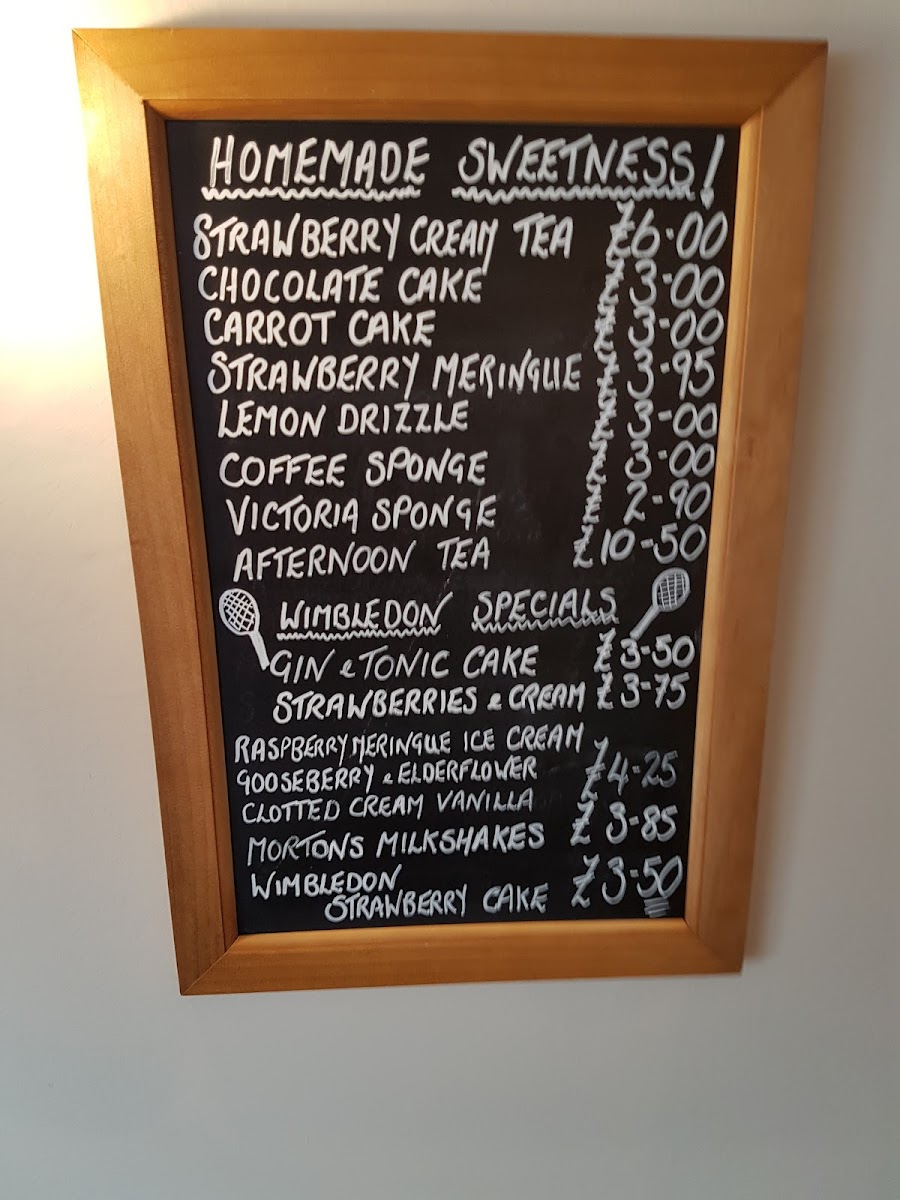 HOMEMADE SWEETNESS!
STRAWBERRY CREAM TEA £6-00
CHOCOLATE CAKE 3-00
CARROT CAKE 3-00
STRAWBERRY MERINGUE 3-95
LEMON DRIZZLE 3-00
COFFEE SPONGE 3-00
VICTORIA SPONGE 2-90
AFTERNOON TEA £10-50
WIMBLEDON SPECIALS
GIN & TONIC CAKE £3-50
STRAWBERRIES & CREAM £3-75
RASPBERRY MERINGUE ICE CREAM
GOOSEBERRY & ELDERFLOWER £4-25
CLOTTED CREAM VANILLA
MORTONS MILKSHAKES £3-85
WIMBLEDON
STRAWBERRY CAKE £3-50